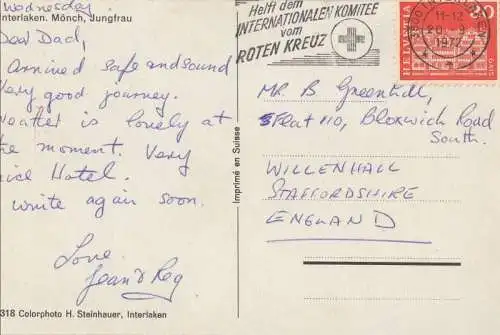 Wednesday
Interlaken. Mönch, Jungfrau
Dear Dad,
Arrived safe and sound
Very good journey.
Weather is lovely at
the moment. Very
nice Hotel.
write again soon.
Love
Jean & Reg
318 Colorphoto H. Steinhauer, Interlaken
Imprimé en Suisse
Helft dem
INTERNATIONALEN KOMITEE
vom
ROTEN KREUZ
11-12
1972
HELVETIA
Mr B Greenhill,
Flat 110, Bloxwich Road
South.
WILLENHALL
STAFFORDSHIRE
ENGLAND